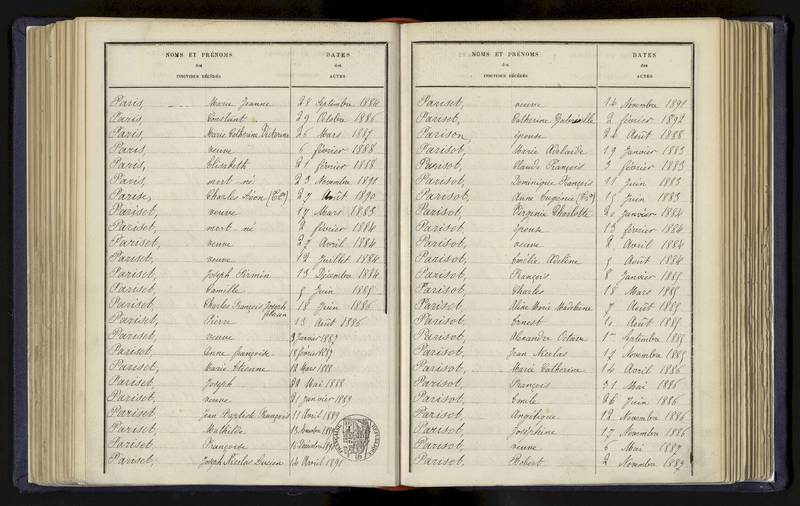 NOMS ET PRÉNOMS
des
CONVIVES DÉCÉDÉS
DATES
des
ACTES
Paris, Marie Jeanne 28 Septembre 1884
Paris, Constant 29 Octobre 1886
Paris, Marie Victorine 26 Mars 1887
Paris, veuve 6 février 1888
Paris, Elisabeth 21 février 1888
Paris, mort né 23 Novembre 1891
Parise, Charles Léon 27 Août 1890
Pariset, veuve 17 Mars 1883
Pariset, mort né 2 février 1884
Pariset, veuve 27 Avril 1884
Pariset, veuve 12 Juillet 1884
Pariset, Joseph Firmin 13 Décembre 1884
Pariset, Camille 5 Juin 1885
Pariset, Charles François Joseph 18 Juin 1886
Pariset, Pierre 13 Août 1886
Pariset, veuve 3 Janvier 1887
Pariset, Anne françoise 18 février 1887
Pariset, Marie Etienne 12 Mars 1888
Pariset, Joseph 20 Mai 1888
Pariset, veuve 21 Janvier 1889
Pariset, Jean Baptiste François 11 Avril 1889
Pariset, Mathilde 13 Novembre
Pariset, Françoise 15 Décembre
Pariset, Joseph Nicolas Lucien 14 Avril 1891
NOMS ET PRÉNOMS
des
CONVIVES DÉCÉDÉS
DATES
des
ACTES
Pariset, veuve 14 Novembre 1891
Pariset, Catherine 2 février 1892
Parison, épouse 24 Août 1888
Parisot, Marie Adélaïde 19 Janvier 1883
Parisot, Claude François 3 février 1883
Parisot, Dominique François 11 Juin 1883
Parisot, Anne Eugénie 15 Juin 1883
Parisot, Virginie Charlotte 20 Janvier 1884
Parisot, épouse 13 février 1884
Parisot, veuve 2 Avril 1884
Parisot, Emilie Adeline 5 Août 1884
Parisot, François 8 Janvier 1885
Parisot, Charles 18 Mars 1885
Parisot, Aline Marie Madeleine 7 Août 1885
Parisot, Ernest 10 Août 1885
Parisot, Alexandre Octave 1er Septembre 1885
Parisot, Jean Nicolas 12 Novembre 1885
Parisot, Marie Catherine 14 Avril 1886
Parisot, François 31 Mai 1886
Parisot, Emile 26 Juin 1886
Parisot, Angélique 12 Novembre 1886
Parisot, Joséphine 17 Novembre 1886
Parisot, veuve 6 Mai 1887
Parisot, Robert 2 Novembre 1887